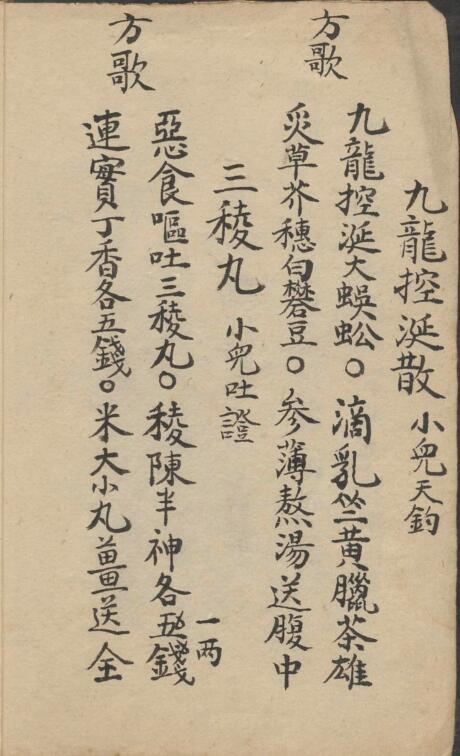 九龍控涎散 小兒天釣
方歌
九龍控涎大蜈蚣。滴乳竺黄臘茶雄
炙草芥穗白礬豆。参薄熬湯送腹中
三稜丸 小兒吐證
方歌
惡食嘔吐三稜丸。稜陳半神各五錢
一两
連實丁香各五錢。米大小丸薑送全